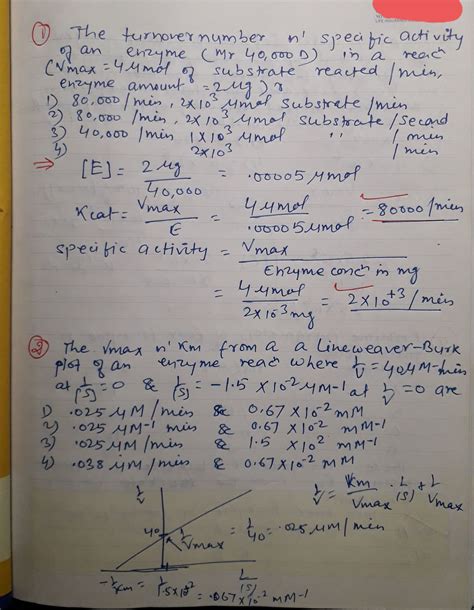 ① The turnover number n' specific activity
of an enzyme (Mr 40,000 D) in a reacn
(Vmax = 4 μmol of substrate reacted /min,
enzyme amount = 2μg) is
1) 80,000 /min, 2×10³ μmol substrate /min
2) 80,000 /min, 2×10³ μmol substrate /second
3) 40,000 /min 1×10³ μmol " /min
4) 2×10³ /min
⇒ [E] = 2 μg / 40,000 = .00005 μmol
Kcat = Vmax / E = 4 μmol / .00005 μmol = 80000 /min
specific activity = Vmax / Enzyme concn in mg
= 4 μmol / 2×10³ mg = 2×10⁺³ /min
② The Vmax n' Km from a a Lineweaver-Burk
plot of an enzyme reacn where 1/V = 40 μM-min
at 1/[S] = 0 & 1/[S] = -1.5 ×10⁻² μM-1 at 1/V = 0 are
1) .025 μM/min & 0.67×10⁻² mM
2) .025 μM-1 min & 0.67 ×10⁻² mM-1
3) .025 μM/min & 1.5 ×10² mM-1
4) .038 μM/min & 0.67×10⁻² mM
1/V = Km/Vmax · 1/[S] + 1/Vmax
1/V
40
1/Vmax = 1/40 = .025 μM/min
1/[S]
-1/Km = 1/1.5×10² = .067×10⁻² mM-1